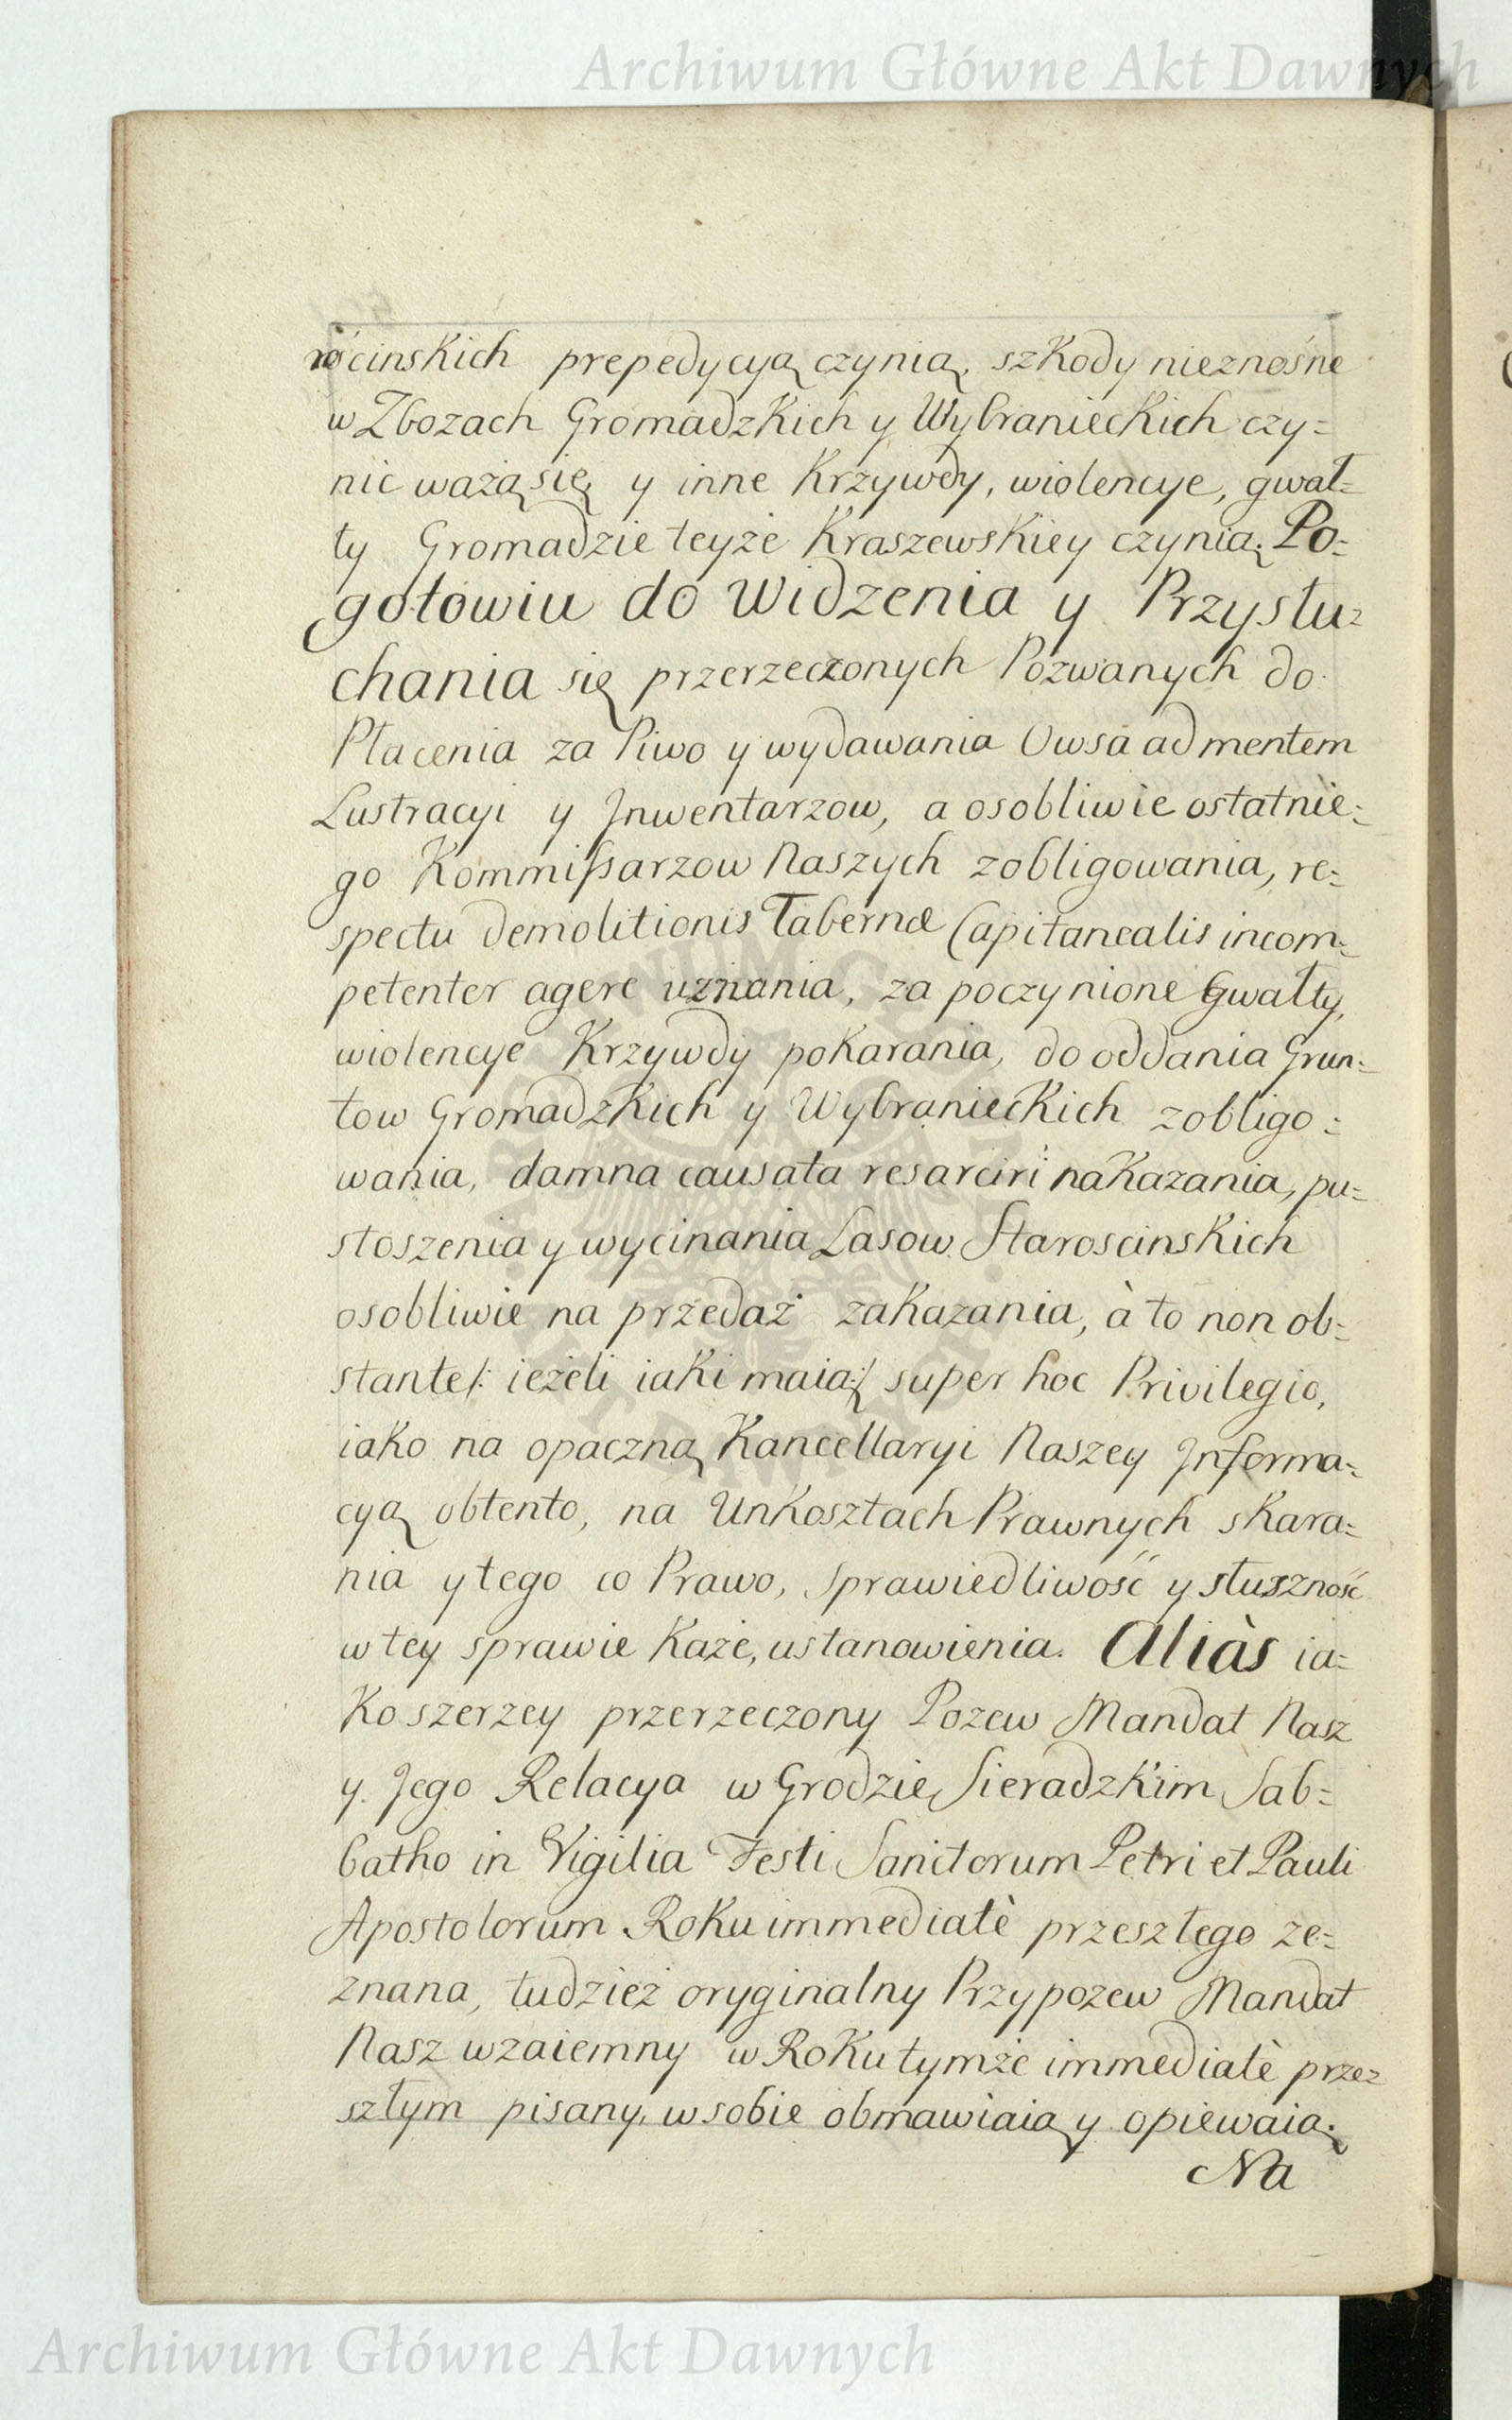 Archiwum Główne Akt Dawnych
rościnskich prepedycyą czynią, szkody nieznośne
w Zbozach Gromadzkich y Wybranieckich czy=
nic ważą się y inne Krzywdy, wiolencye, gwał=
ty Gromadzie teyże Kraszewskiey czynią. Po=
gotowiu do Widzenia y Przysłu=
chania się przerzeczonych Pozwanych do
Płacenia za Piwo y wydawania Owsa ad mentem
Lustracyi y Jnwentarzow, a osobliwie ostatnie=
go Kommissarzow Naszych zobligowania, re=
spectu demolitionis Tabernæ Capitanealis incom=
petenter agere uznania, za poczynione Gwałty,
wiolencye Krzywdy pokarania, do oddania Grun=
tow Gromadzkich y Wybranieckich zobligo=
wania, damna causata resarciri nakazania, pu=
stoszenia y wycinania Lasow Staroscinskich
osobliwie na przedaż zakazania, à to non ob=
stante/: ieżeli iaki maią:/ super hoc Privilegio,
iako na opaczną Kancellaryi Naszey Jnforma=
cyą obtento, na Unkosztach Prawnych skara=
nia y tego co Prawo, Sprawiedliwość y słuszność
w tey sprawie Każe, ustanowienia. Aliàs ia=
Ko szerzey przerzeczony Pozew Mandat Nasz
y Jego Relacya w Grodzie Sieradzkim Sab=
batho in Vigilia Festi Sanctorum Petri et Pauli
Apostolorum Roku immediatè przeszłego ze=
znana, tudzież oryginalny Przypozew Mandat
Nasz wzaiemny w Roku tymże immediatè prze=
szłym pisany, w sobie obmawiaią y opiewaią.
Na
Archiwum Główne Akt Dawnych